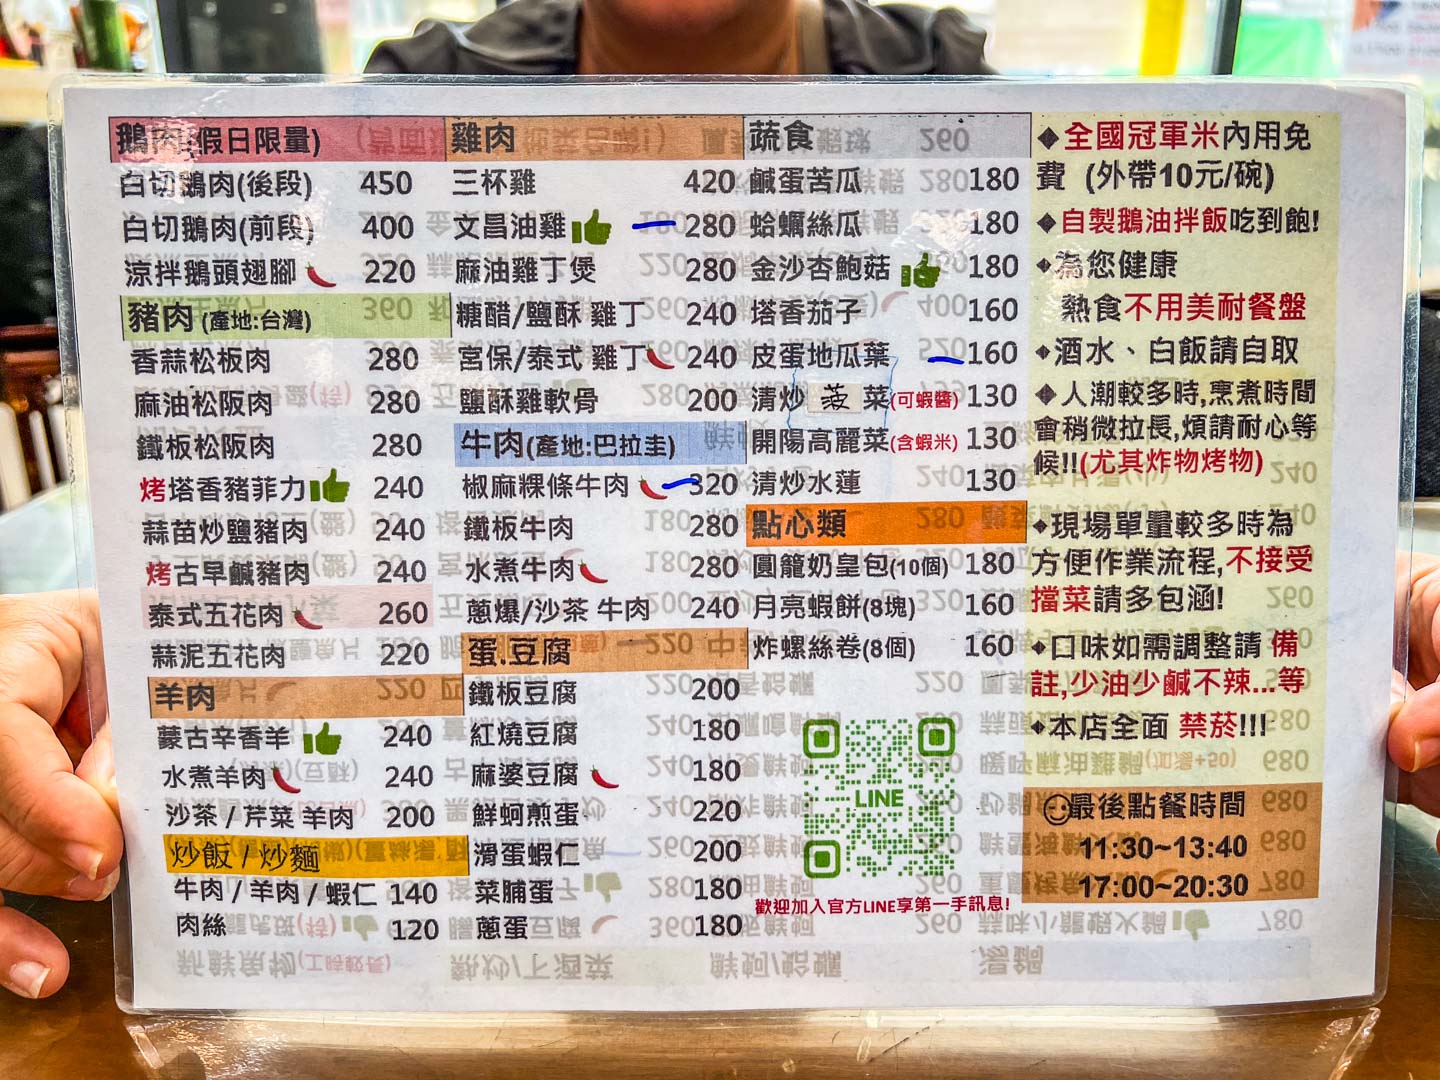 鵝肉(假日限量)
白切鵝肉(後段) 450
白切鵝肉(前段) 400
涼拌鵝頭翅腳 220
豬肉(產地:台灣)
香蒜松板肉 280
麻油松阪肉 280
鐵板松阪肉 280
烤塔香豬菲力 240
蒜苗炒鹽豬肉 240
烤古早鹹豬肉 240
泰式五花肉 260
蒜泥五花肉 220
羊肉
蒙古辛香羊 240
水煮羊肉 240
沙茶/芹菜 羊肉 200
炒飯/炒麵
牛肉/羊肉/蝦仁 140
肉絲 120
雞肉
三杯雞 420
文昌油雞 280
麻油雞丁煲 280
糖醋/鹽酥 雞丁 240
宮保/泰式 雞丁 240
鹽酥雞軟骨 200
牛肉(產地:巴拉圭)
椒麻粿條牛肉 320
鐵板牛肉 280
水煮牛肉 280
蔥爆/沙茶 牛肉 240
蛋.豆腐
鐵板豆腐 200
紅燒豆腐 180
麻婆豆腐 180
鮮蚵煎蛋 220
滑蛋蝦仁 200
菜脯蛋 180
蔥蛋 180
蔬食
鹹蛋苦瓜 180
蛤蠣絲瓜 180
金沙杏鮑菇 180
塔香茄子 160
皮蛋地瓜葉 160
清炒 菠 菜(可蝦醬) 130
開陽高麗菜(含蝦米) 130
清炒水蓮 130
點心類
圓籠奶皇包(10個) 180
月亮蝦餅(8塊) 160
炸螺絲卷(8個) 160
LINE
歡迎加入官方LINE享第一手訊息!
◆全國冠軍米內用免
費 (外帶10元/碗)
◆自製鵝油拌飯吃到飽!
◆為您健康
熱食不用美耐餐盤
◆酒水、白飯請自取
◆人潮較多時,烹煮時間
會稍微拉長,煩請耐心等
候!!(尤其炸物烤物)
◆現場單量較多時為
方便作業流程,不接受
擋菜請多包涵!
◆口味如需調整請 備
註,少油少鹹不辣...等
◆本店全面 禁菸!!!
最後點餐時間
11:30~13:40
17:00~20:30